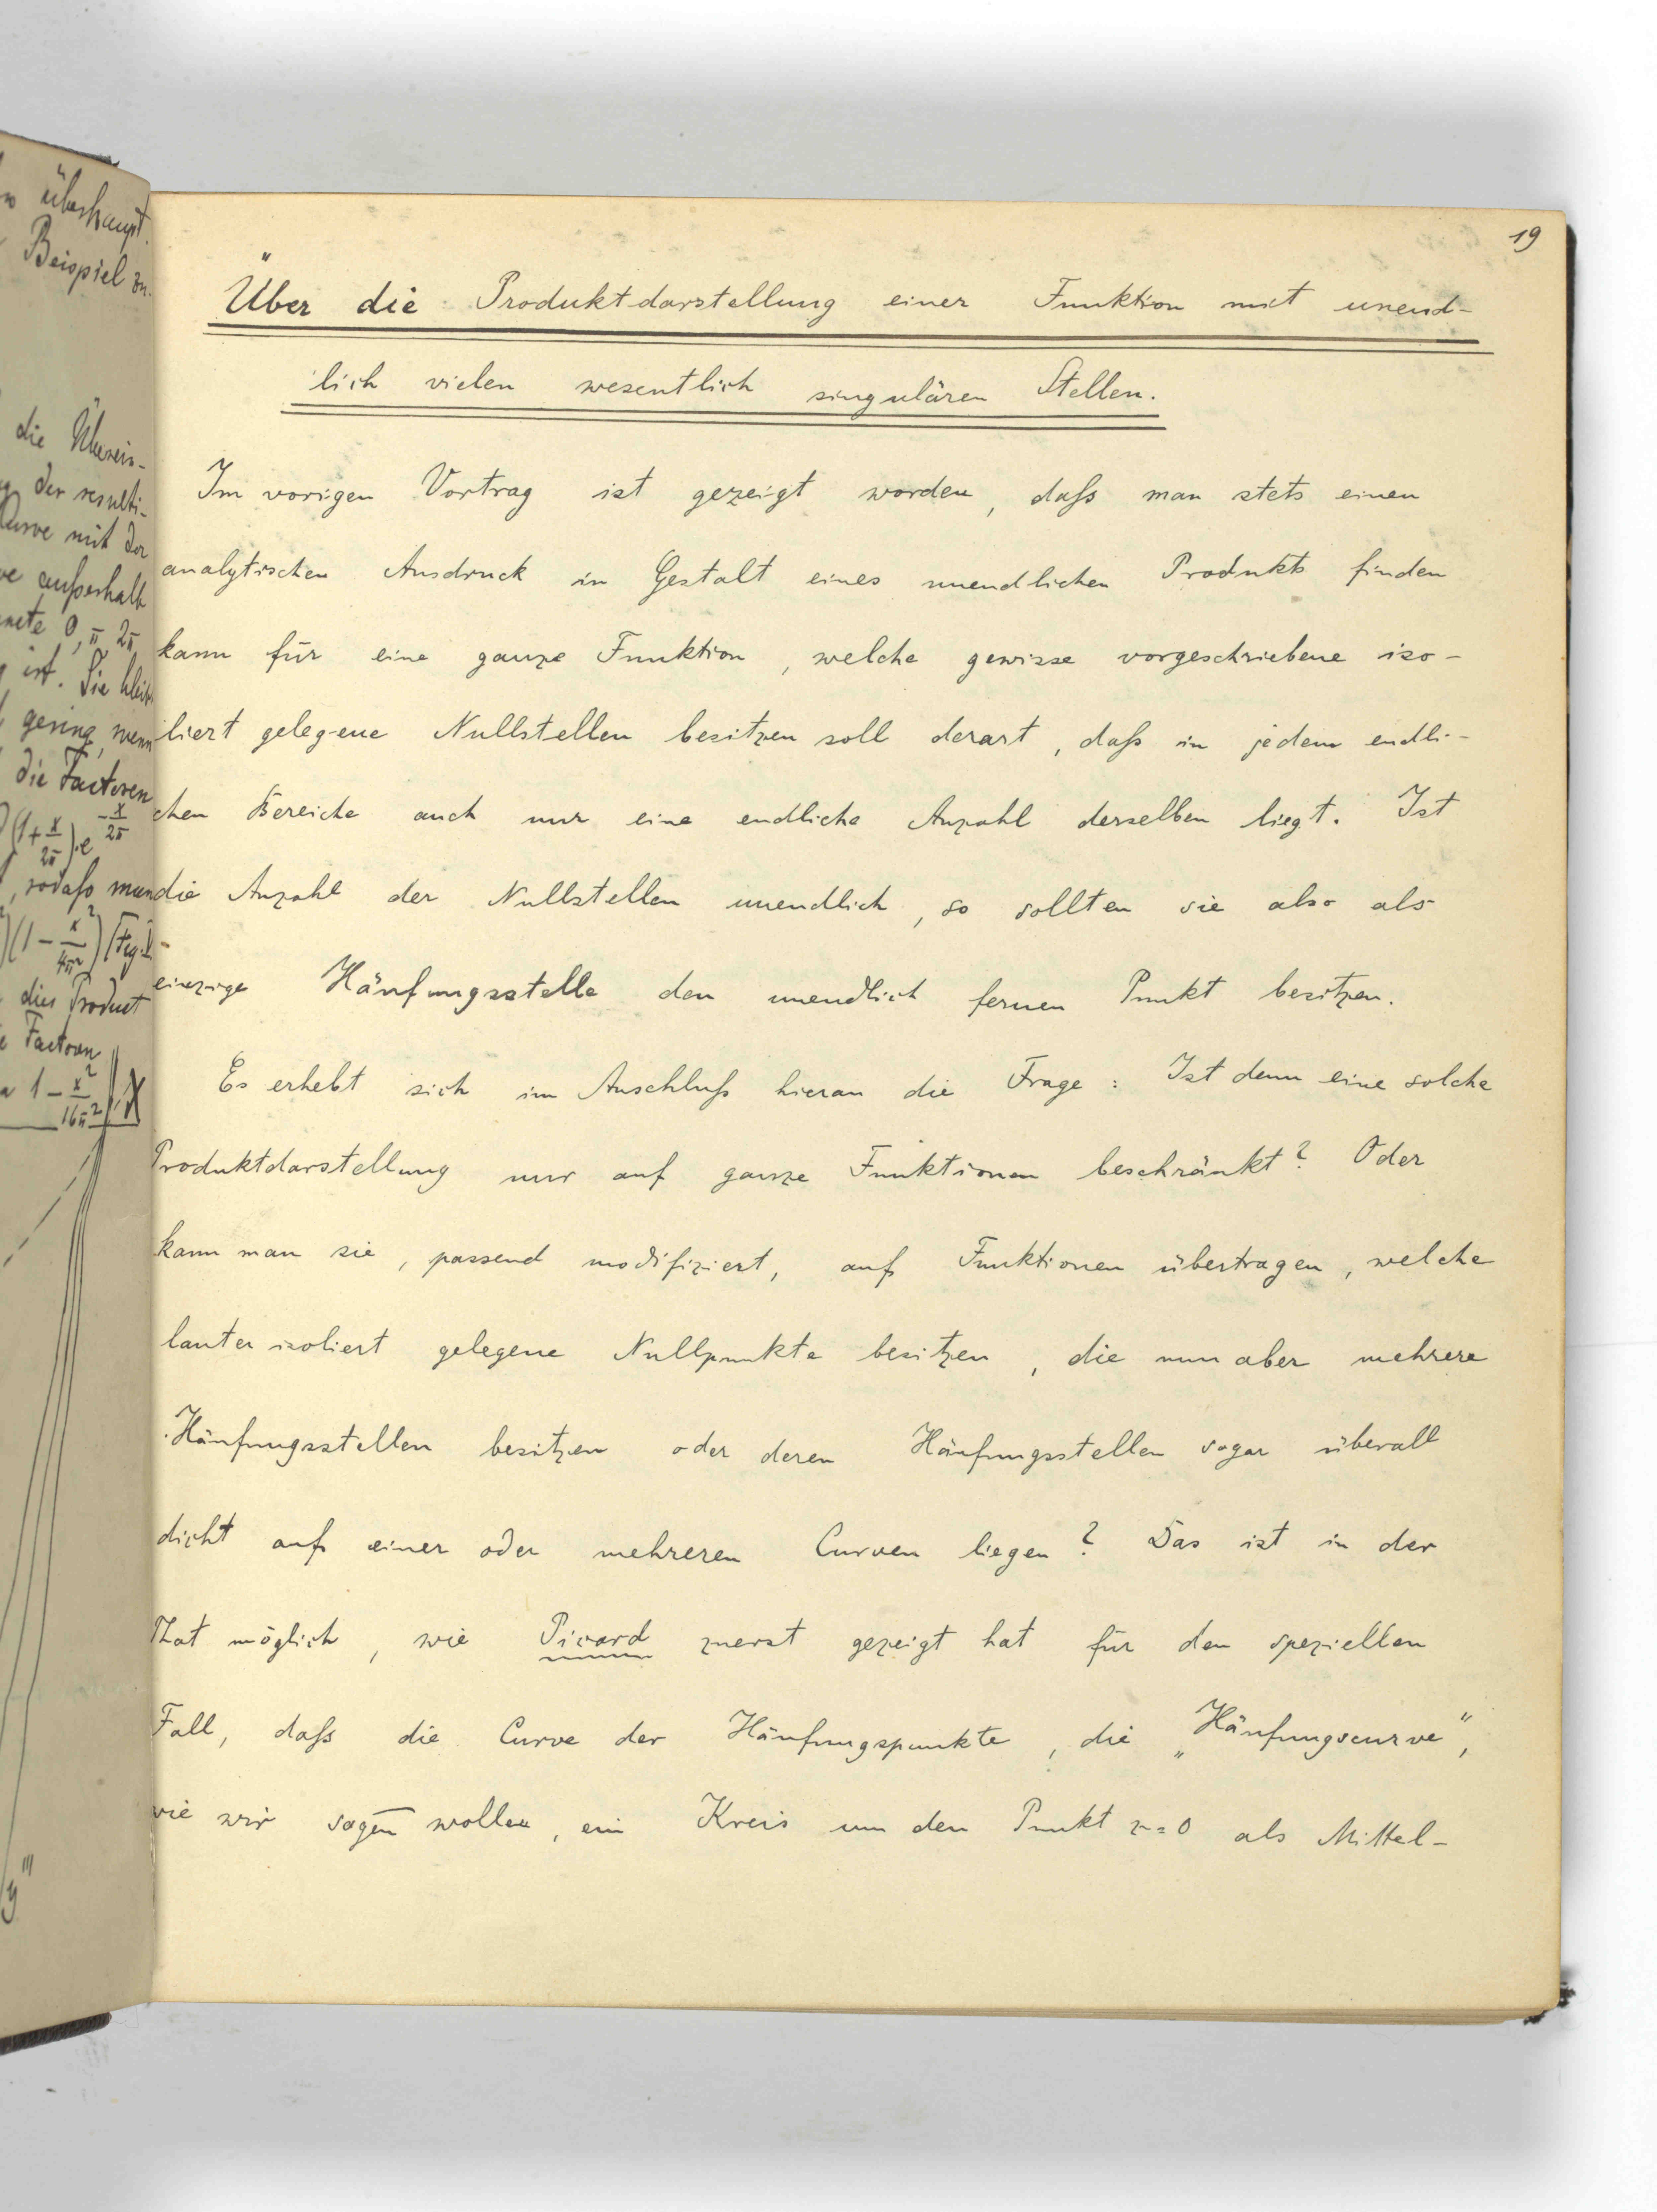 n überhaupt.
Beispiel zu
die Überein-
der resulti-
Curve mit der
ve außerhalb
0, π, 2π
ist. Sie bleibt
gering, wenn
die Factoren
(1+x/2π)·e^{-x/2π}
, sodaß man
(1-x²/4π²) (Fig.
dies Product
Factoren
1-x²/16π²
19
Über die Produktdarstellung einer Funktion mit unend-
lich vielen wesentlich singulären Stellen.
Im vorigen Vortrag ist gezeigt worden, daß man stets einen
analytischen Ausdruck in Gestalt eines unendlichen Produkts finden
kann für eine ganze Funktion, welche gewisse vorgeschriebene iso-
liert gelegene Nullstellen besitzen soll derart, daß in jedem endli-
chen Bereiche auch nur eine endliche Anzahl derselben liegt. Ist
die Anzahl der Nullstellen unendlich, so sollten sie also als
einzige Häufungsstelle den unendlich fernen Punkt besitzen.
Es erhebt sich im Anschluß hieran die Frage: Ist denn eine solche
Produktdarstellung nur auf ganze Funktionen beschränkt? Oder
kann man sie, passend modifiziert, auf Funktionen übertragen, welche
lauter isoliert gelegene Nullpunkte besitzen, die nun aber mehrere
Häufungsstellen besitzen oder deren Häufungsstellen sogar überall
dicht auf einer oder mehreren Curven liegen? Das ist in der
That möglich, wie Picard zuerst gezeigt hat für den speziellen
Fall, daß die Curve der Häufungspunkte, die „Häufungscurve“,
wie wir sagen wollen, ein Kreis um den Punkt z=0 als Mittel-